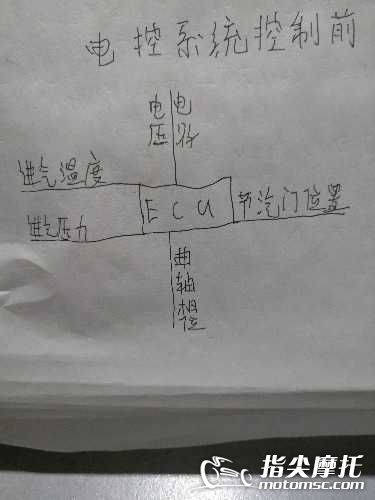 电控系统控制前
电压
电
进气温度
进气压力
ECU
节汽门位置
曲轴相位
指尖摩托
motomsc.com